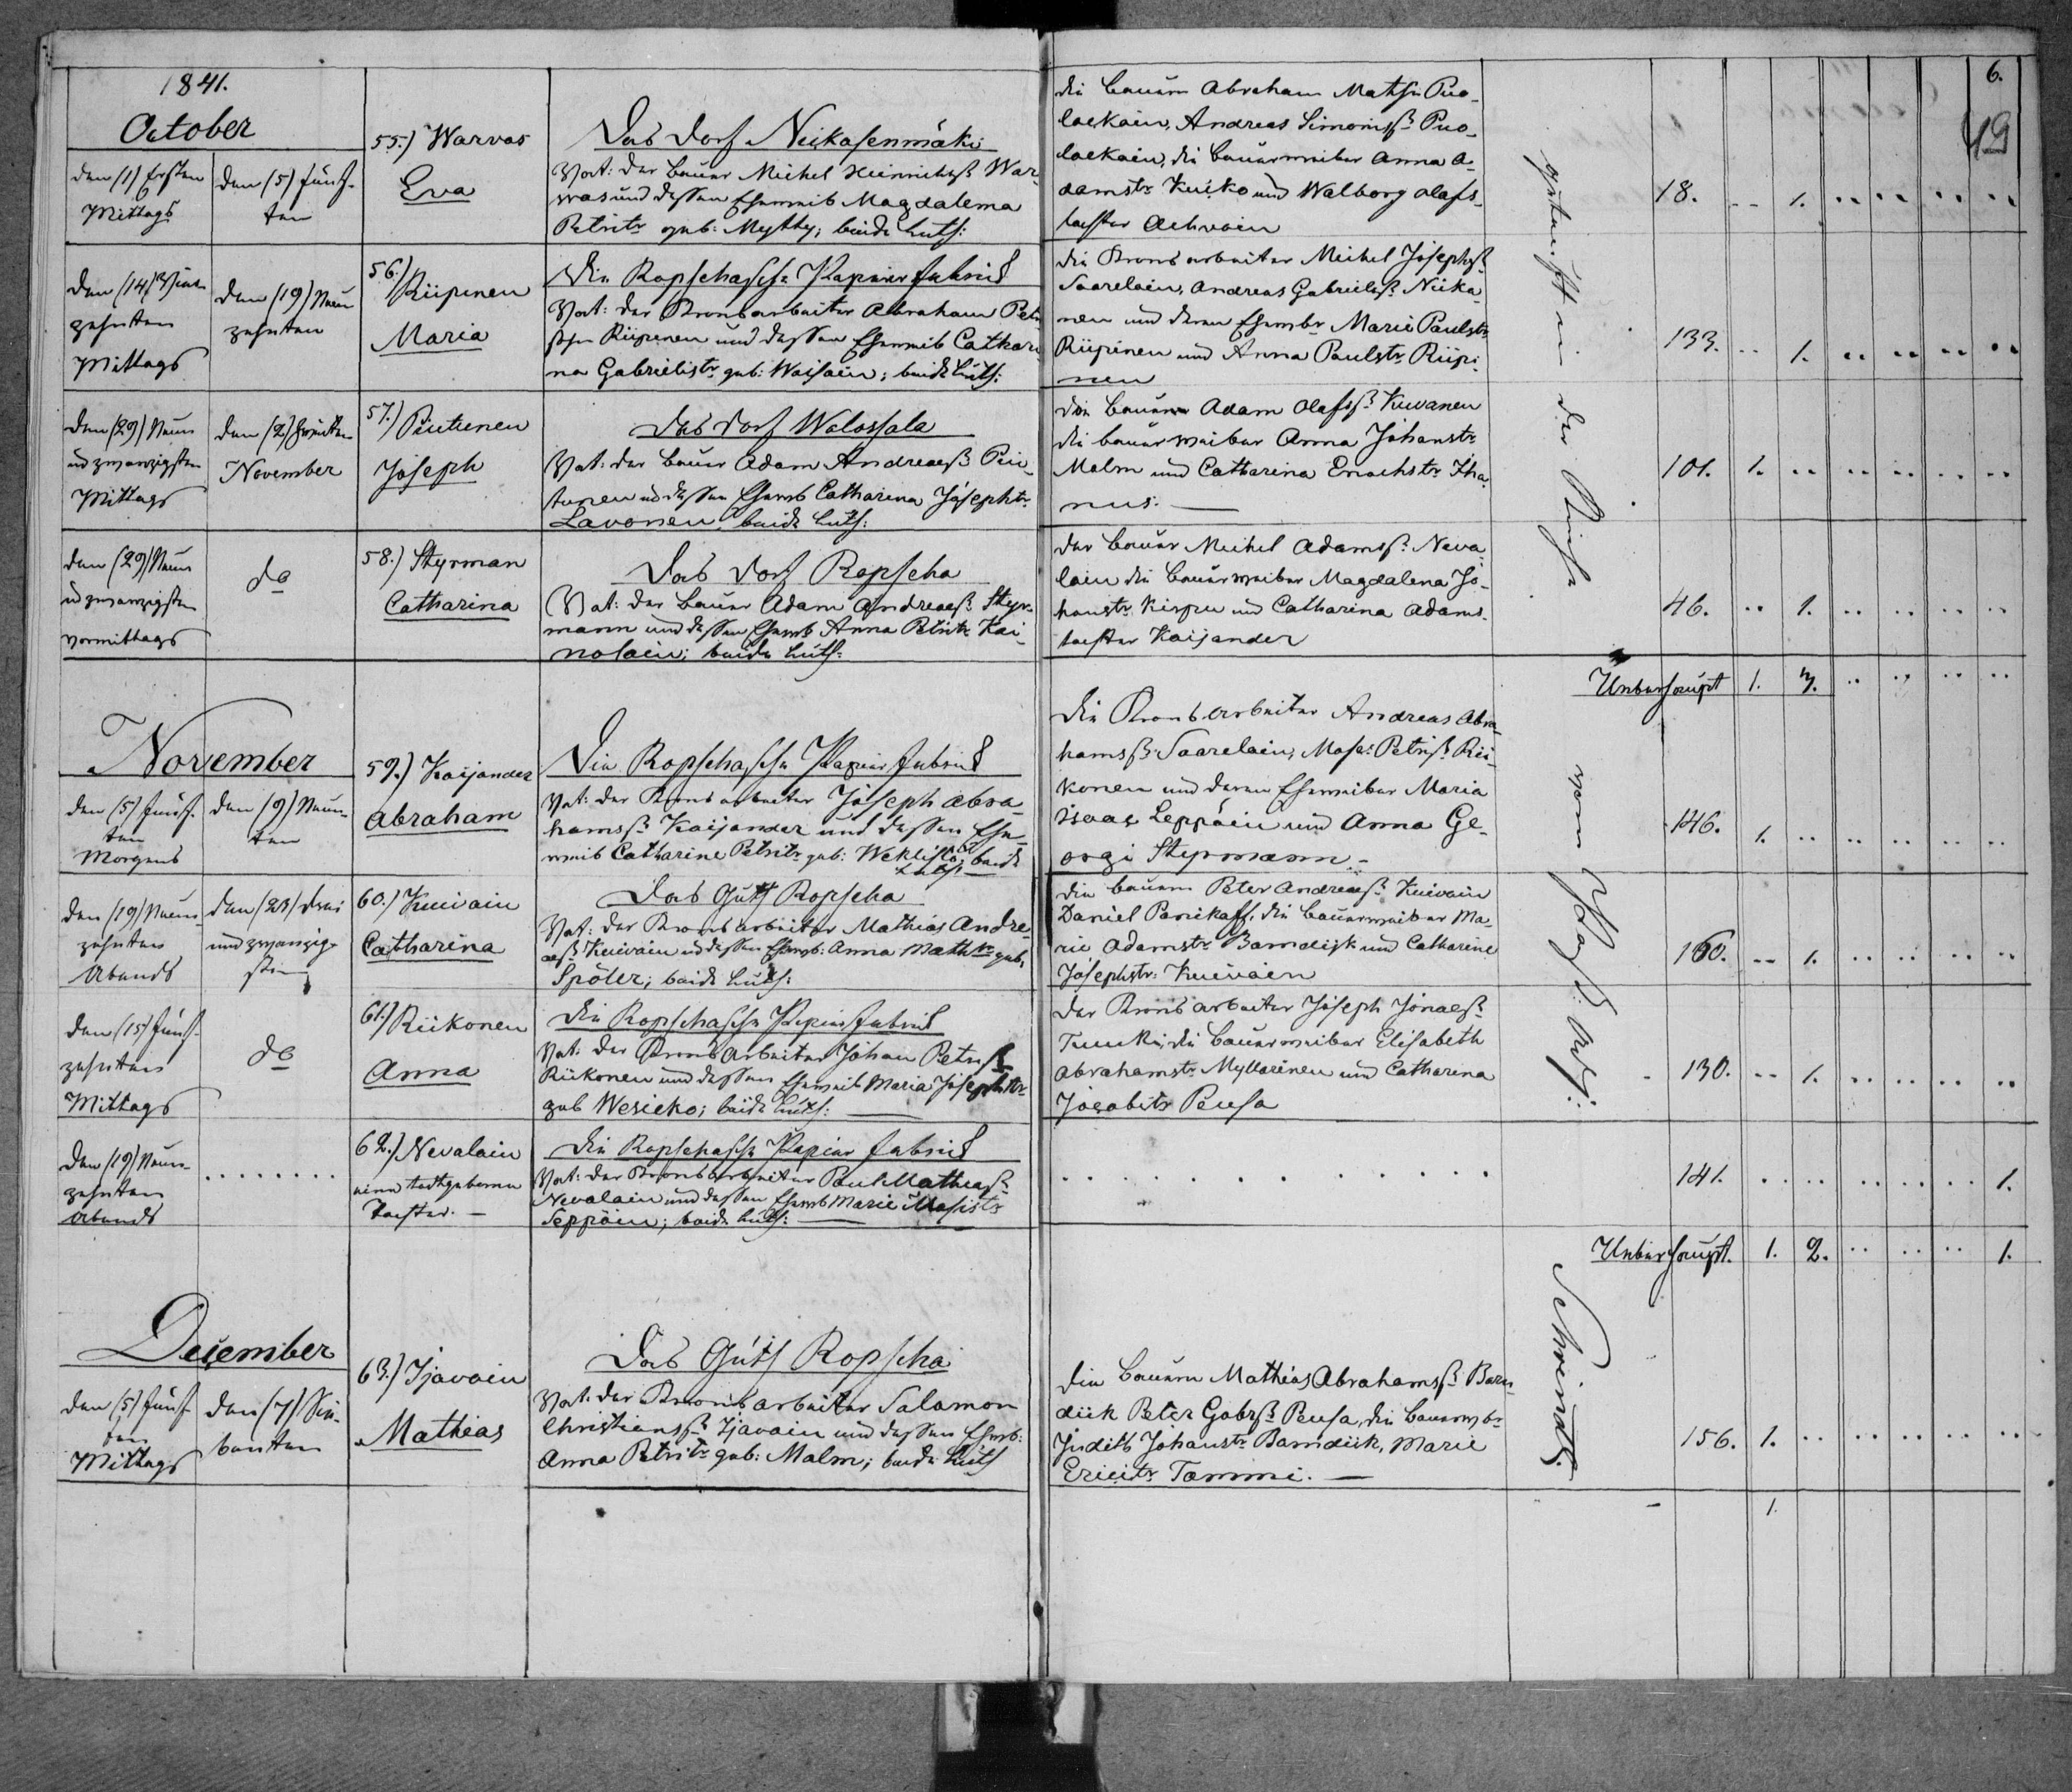 1841.
October
den (1) Ersten
Mittags
den (5) Fünf-
ten
55.) Warvas
Eva
Das Dorf Neikasenmäki
Vat: der Bauer Michel Heinrichsß War-
was und dessen Eheweib Magdalena
Petritr geb: Mythy; beide luth:
die Bauern Abraham Mathsn Puo-
lackain, Andreas Simonisß Puo-
lackain, die Bauerweiber Anna A-
damstr Kuiko und Walborg Olafs-
tochter Achvain
18. .. 1. .. .. .. ..
6.
49
den (14) Vier-
zehnten
Mittags
den (19) Neun-
zehnten
56.) Riipinen
Maria
Die Ropschasche Papier Fabrick
Vat: der Kronsarbeiter Abraham Petri
sohn Riipinen und dessen Eheweib Cathari
na Gabrielistr geb: Waisain; beide luth:
die Kronsarbeiter Michel Josephsß
Saarelain, Andreas Gabrielsß Niika-
nen und deren Ehewbr Marie Paulstr
Riipinen und Anna Paulstr Riipi-
nen
133. .. 1. .. .. .. ..
den (29) Neun
und zwanzigsten
Mittags
den (2) Zweiten
November
57.) Piutunen
Joseph
Das Dorf Walossala
Vat: der Bauer Adam Andreaeß Piu-
tunen und dessen Ehewb Catharina Josephtr
Lavonen; beide luth:
die Bauern Adam Olafsß Kuvanen
die Bauerweiber Anna Johanstr
Malm und Catharina Enochstr Iha-
nus.
101. 1. .. .. .. .. ..
den (29) Neun
und zwanzigsten
Vormittags
do
58.) Styrman
Catharina
Das Dorf Ropscha
Vat: der Bauer Adam Andreaeß Styr-
mann und dessen Ehewb Anna Petritr Kai-
nolain; beide luth:
der Bauer Michel Adamsß Neva-
lain die Bauerweiber Magdalena Jo-
hanstr Kirpu und Catharina Adams-
tochter Kaijander
46. .. 1. .. .. .. ..
Ueberhaupt 1. 3. .. .. .. ..
November
den (5) Fünf-
ten
Morgens
den (9) Neun-
ten
59.) Kaijander
Abraham
Die Ropschasche Papier Fabrick
Vat: der Kronsarbeiter Joseph Abra-
hamsß Kaijander und dessen Ehe-
weib Catharine Petritr geb: beide
luth:
die Kronsarbeiter Andreas Abra-
hamsß Saarelain, Mose: Petrisß Rii-
konen und deren Eheweiber Maria
Isaac Leppäin und Anna Ge-
orgi Styrmann.
146. 1. .. .. .. .. ..
den (19) Neun-
zehnten
Abends
den (23) Drei
und zwanzig-
sten
60.) Kuivain
Catharina
Das Guth Ropscha
Vat: der Kronsarbeiter Mathias Andre-
aeß Kuivain und dessen Ehewb: Anna Mathtr geb:
Spöler; beide luth:
die Bauern Peter Andreaeß Kuivain
Daniel Parikass, die Bauerweiber Ma-
rie Adamstr Barndigk und Catharine
Josephstr: Kuivain
160. .. 1. .. .. .. ..
den (15) Fünf-
zehnten
Mittags
do
61.) Riikonen
Anna
Die Ropschasche Papier Fabrick
Vat: der Kronsarbeiter Johan Petrisß
Riikonen und dessen Eheweib Maria Josephstr
geb Wesicko; beide luth:
der Kronsarbeiter Joseph Jonaeß
Tuuki, die Bauerweiber Elisabeth
Abrahamstr Myllarinen und Catharina
Jacobstr Peusa
130. .. 1. .. .. .. ..
den (19) Neun-
zehnten
Abends
. . . . . . .
62.) Nevalain
eine todtgeborne
Tochter.
Die Ropschasche Papier Fabrick
Vat: der Kronsarbeiter Paul Mathiasß
Nevalain und dessen Ehewb Marie Mosistr
Seppäin; beide luth:
. . . . . . . . . . .
141. .. .. .. .. .. 1.
Ueberhaupt. 1. 2. .. .. .. 1.
December
den (5) Fünf-
ten
Mittags
den (7) Sie-
benten
63.) Ijavain
Mathias
Das Guth Ropscha
Vat: der Kronsarbeiter Salamon
Christiansß Ijavain und dessen Ehewb:
Anna Petritr geb: Malm; beide luth
die Bauern Mathias Abrahamsß Barn
diik Peter Gabrsß Peusa, die Bauerwbr
Judith Johanstr Barndiik, Marie
Ericitr Tammi.
156. 1. .. .. .. .. ..
- 1.
getauft in der Kirche vom Past: Schwindt.